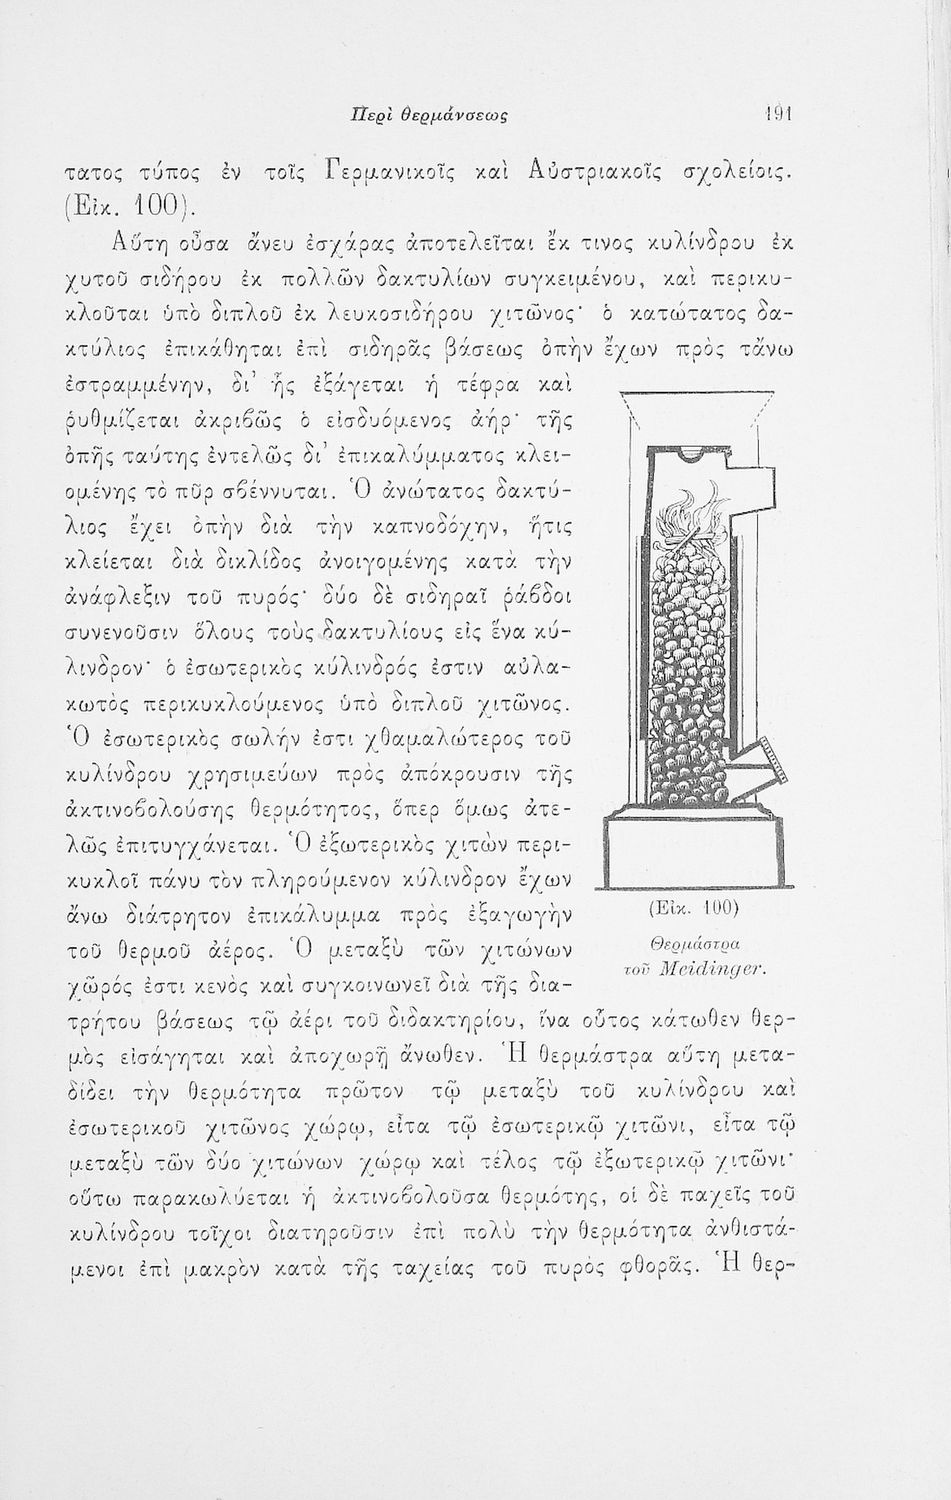 Περὶ θερμάνσεως 191
τατος τύπος ἐν τοῖς Γερμανικοῖς καὶ Αὐστριακοῖς σχολείοις.
(Εἰκ. 100).
Αὕτη οὖσα ἄνευ ἐσχάρας ἀποτελεῖται ἔκ τινος κυλίνδρου ἐκ
χυτοῦ σιδήρου ἐκ πολλῶν δακτυλίων συγκειμένου, καὶ περικυ-
κλοῦται ὑπὸ διπλοῦ ἐκ λευκοσιδήρου χιτῶνος· ὁ κατώτατος δα-
κτύλιος ἐπικάθηται ἐπὶ σιδηρᾶς βάσεως ὀπὴν ἔχων πρὸς τἄνω
ἐστραμμένην, δι' ἧς ἐξάγεται ἡ τέφρα καὶ
ῥυθμίζεται ἀκριβῶς ὁ εἰσδυόμενος ἀήρ· τῆς
ὀπῆς ταύτης ἐντελῶς δι' ἐπικαλύμματος κλει-
ομένης τὸ πῦρ σβέννυται. Ὁ ἀνώτατος δακτύ-
λιος ἔχει ὀπὴν διὰ τὴν καπνοδόχην, ἥτις
κλείεται διὰ δικλίδος ἀνοιγομένης κατὰ τὴν
ἀνάφλεξιν τοῦ πυρός· δύο δὲ σιδηραῖ ῥάβδοι
συνενοῦσιν ὅλους τοὺς δακτυλίους εἰς ἕνα κύ-
λινδρον· ὁ ἐσωτερικὸς κύλινδρός ἐστιν αὐλα-
κωτὸς περικυκλούμενος ὑπὸ διπλοῦ χιτῶνος.
Ὁ ἐσωτερικὸς σωλήν ἐστι χθαμαλώτερος τοῦ
κυλίνδρου χρησιμεύων πρὸς ἀπόκρουσιν τῆς
ἀκτινοβολούσης θερμότητος, ὅπερ ὅμως ἀτε-
λῶς ἐπιτυγχάνεται. Ὁ ἐξωτερικὸς χιτὼν περι-
κυκλοῖ πάνυ τὸν πληρούμενον κύλινδρον ἔχων
ἄνω διάτρητον ἐπικάλυμμα πρὸς ἐξαγωγὴν
τοῦ θερμοῦ ἀέρος. Ὁ μεταξὺ τῶν χιτώνων
χῶρός ἐστι κενὸς καὶ συγκοινωνεῖ διὰ τῆς δια-
(Εἰκ. 100)
Θερμάστρα
τοῦ Meidinger.
τρήτου βάσεως τῷ ἀέρι τοῦ διδακτηρίου, ἵνα οὗτος κάτωθεν θερ-
μὸς εἰσάγηται καὶ ἀποχωρῇ ἄνωθεν. Ἡ θερμάστρα αὕτη μετα-
δίδει τὴν θερμότητα πρῶτον τῷ μεταξὺ τοῦ κυλίνδρου καὶ
ἐσωτερικοῦ χιτῶνος χώρῳ, εἶτα τῷ ἐσωτερικῷ χιτῶνι, εἶτα τῷ
μεταξὺ τῶν δύο χιτώνων χώρῳ καὶ τέλος τῷ ἐξωτερικῷ χιτῶνι·
οὕτω παρακωλύεται ἡ ἀκτινοβολοῦσα θερμότης, οἱ δὲ παχεῖς τοῦ
κυλίνδρου τοῖχοι διατηροῦσιν ἐπὶ πολὺ τὴν θερμότητα ἀνθιστά-
μενοι ἐπὶ μακρὸν κατὰ τῆς ταχείας τοῦ πυρὸς φθορᾶς. Ἡ θερ-